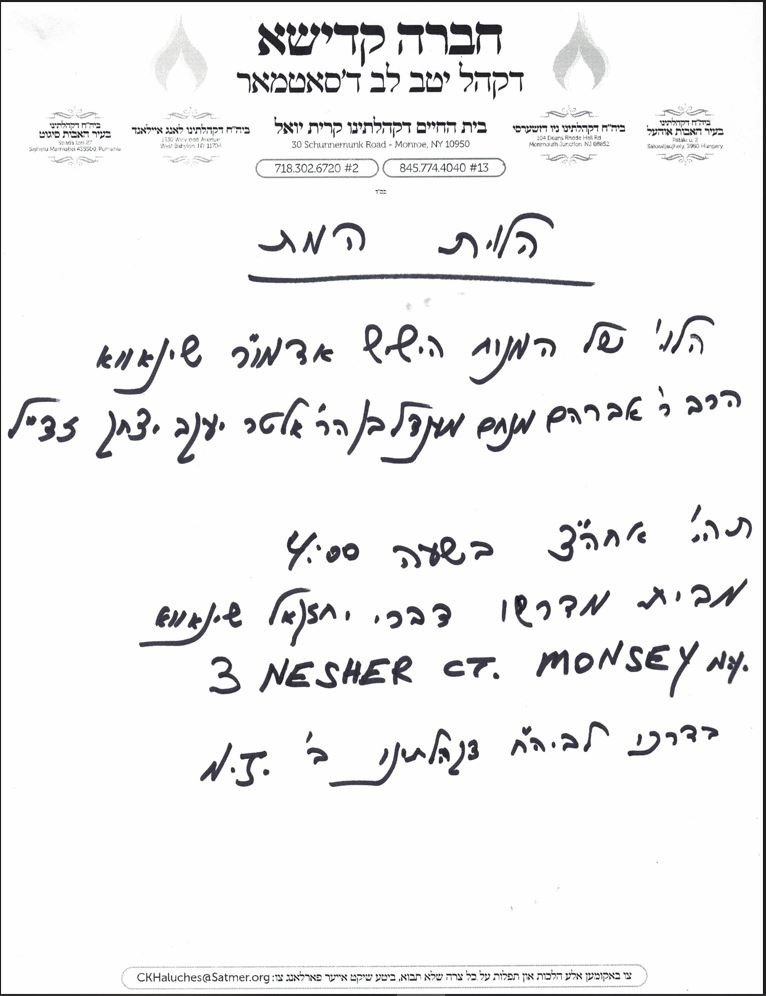 חברה קדישא
דקהל יטב לב ד'סאטמאר
ביה"ח דקהלתינו
בעיר האבות סיגוט
Sighetu Marmatiei 435500, Rumania
ביה"ח דקהלתינו לאנג איילאנד
1330 Wellwood Avenue
West Babylon, NY 11704
בית החיים דקהלתינו קרית יואל
30 Schunnemunk Road - Monroe, NY 10950
718.302.6720 #2
845.774.4040 #13
ביה"ח דקהלתינו ניו דזשערסי
104 Deans Rhode Hall Rd
Monmouth Junction, NJ 08852
ביה"ח דקהלתינו
בעיר האבות אוהעל
Sátoraljaújhely, 3980 Hungary
בס"ד
הלוית המת
הלוי' של המנוח הישיש אדמו"ר שינאווא
הרב ר' אברהם מנחם מענדל בן הר' אלטר יעקב יצחק זצ"ל
תהי' אחה"צ בשעה 4:00
מבית מדרשו דברי יחזקאל שינאווא
3 NESHER CT. MONSEY NY.
בדרכו לביה"ח דקהלתינו ב' N.J.
צו באקומען אלע הלכות און תפלות על כל צרה שלא תבוא, ביטע שיקט אייער פארלאנג צו: CKHaluches@Satmer.org